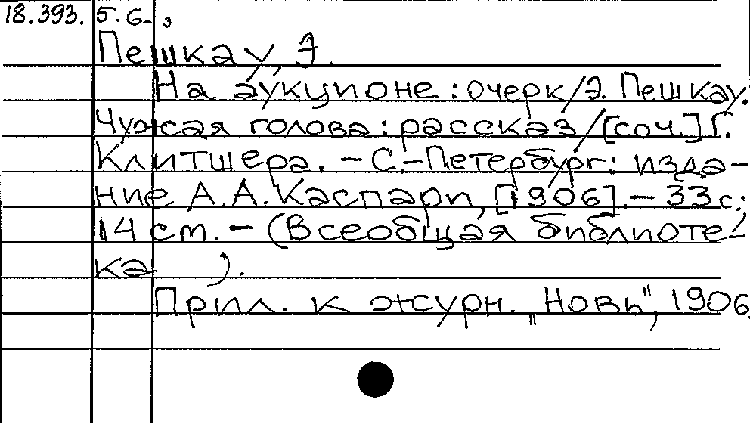 18.393. 5.6.,
Пешкау, Э.
На аукционе : очерк / Э. Пешкау.
Чужая голова : рассказ / [соч.] Г.
Клитшера. – С.-Петербург : изда-
ние А.А. Каспари, [1906]. – 33 с.;
14 см. – (Всеобщая библиоте-
ка ).
Прил. к журн. „Новь", 1906